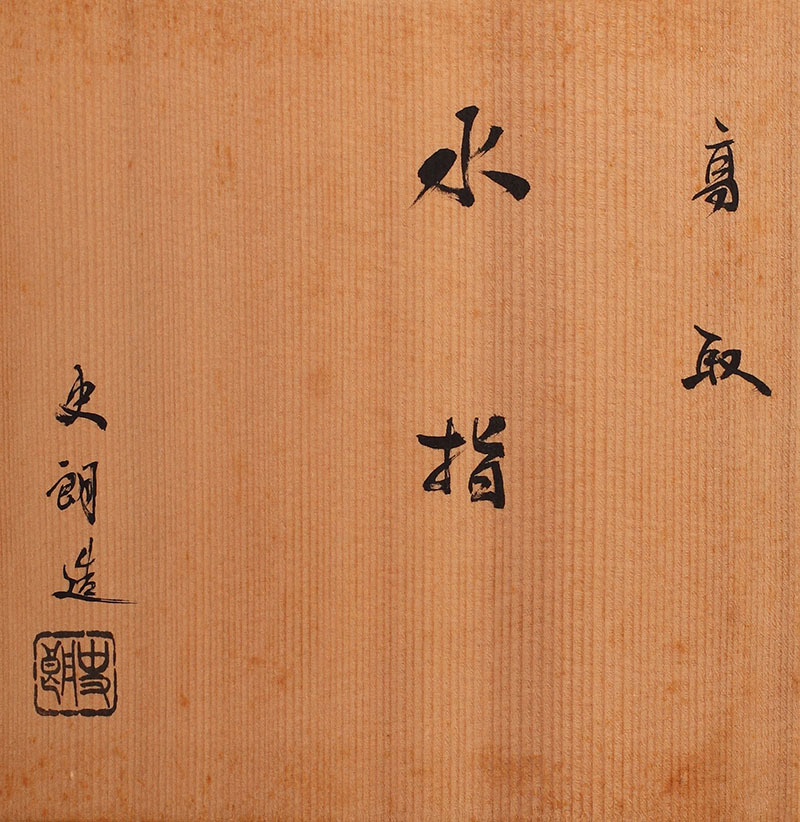 高取
水指
史朗造
史朗